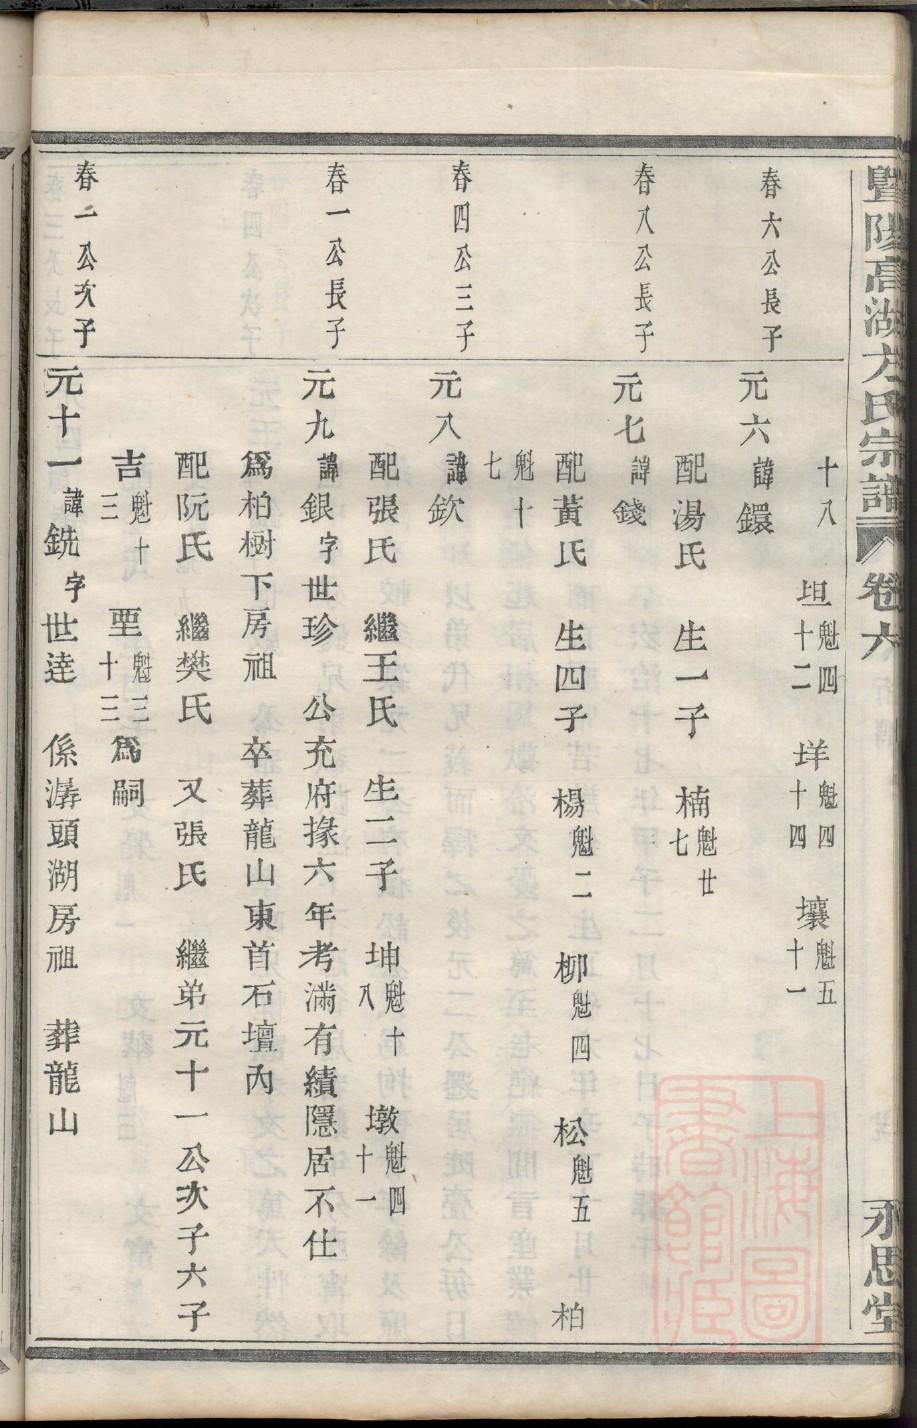 暨陽高湖方氏宗譜 卷六 永思堂
十八 坦魁四十二 垟魁四十四 壤魁五十一
春六公長子
元六諱鐶
配湯氏 生一子 楠魁廿七
春八公長子
元七諱錢
配黃氏 生四子 楊魁二 柳魁四 松魁五 柏
魁十七
春四公三子
元八諱欽
配張氏 繼王氏 生二子 坤魁十八 墩魁四十一
春一公長子
元九諱銀字世珍 公充府掾六年考滿有績隱居不仕
爲柏樹下房祖 卒葬龍山東首石壇內
配阮氏 繼樊氏 又張氏 繼弟元十一公次子六子
吉魁十三 垔魁三十三爲嗣
春一公次子
元十一諱銑字世逹 係潺頭湖房祖 葬龍山
上海圖書館藏